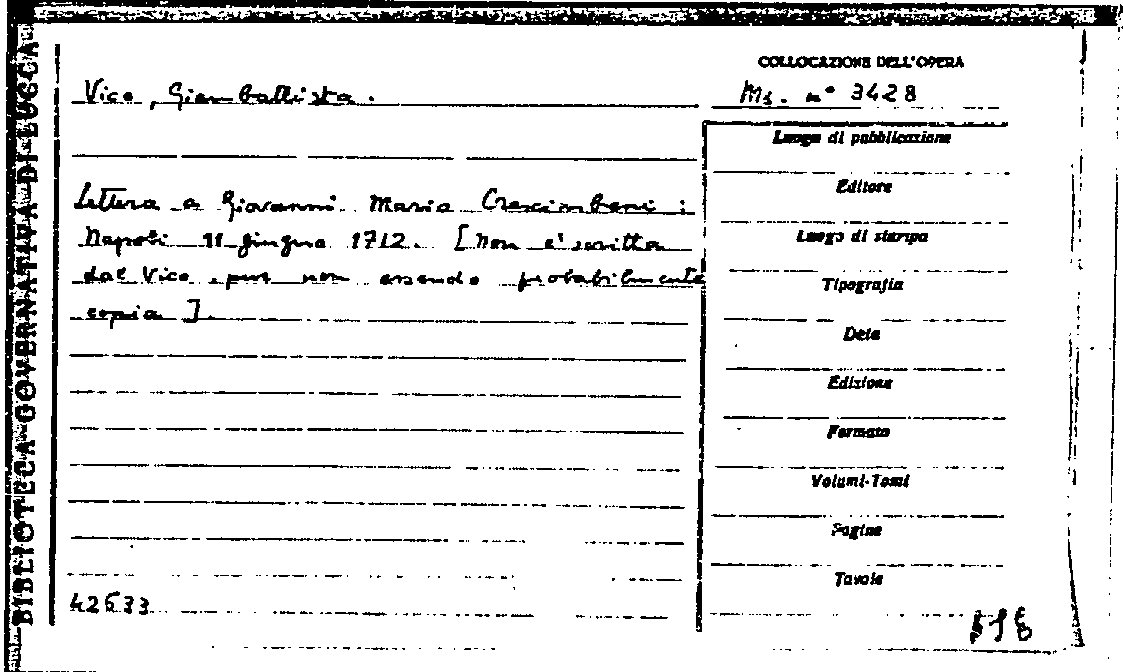 BIBLIOTECA GOVERNATIVA DI LUCCA
COLLOCAZIONE DELL'OPERA
Vico, Giambattista.
Ms. n° 3428
Lettera a Giovanni Maria Crescimbeni :
Napoli 11 giugno 1712. [Non e' scritta
dal Vico, pur non essendo probabilmente
copia].
Luogo di pubblicazione
Editore
Luogo di stampa
Tipografia
Data
Edizione
Formato
Volumi-Tomi
Pagine
Tavole
42633